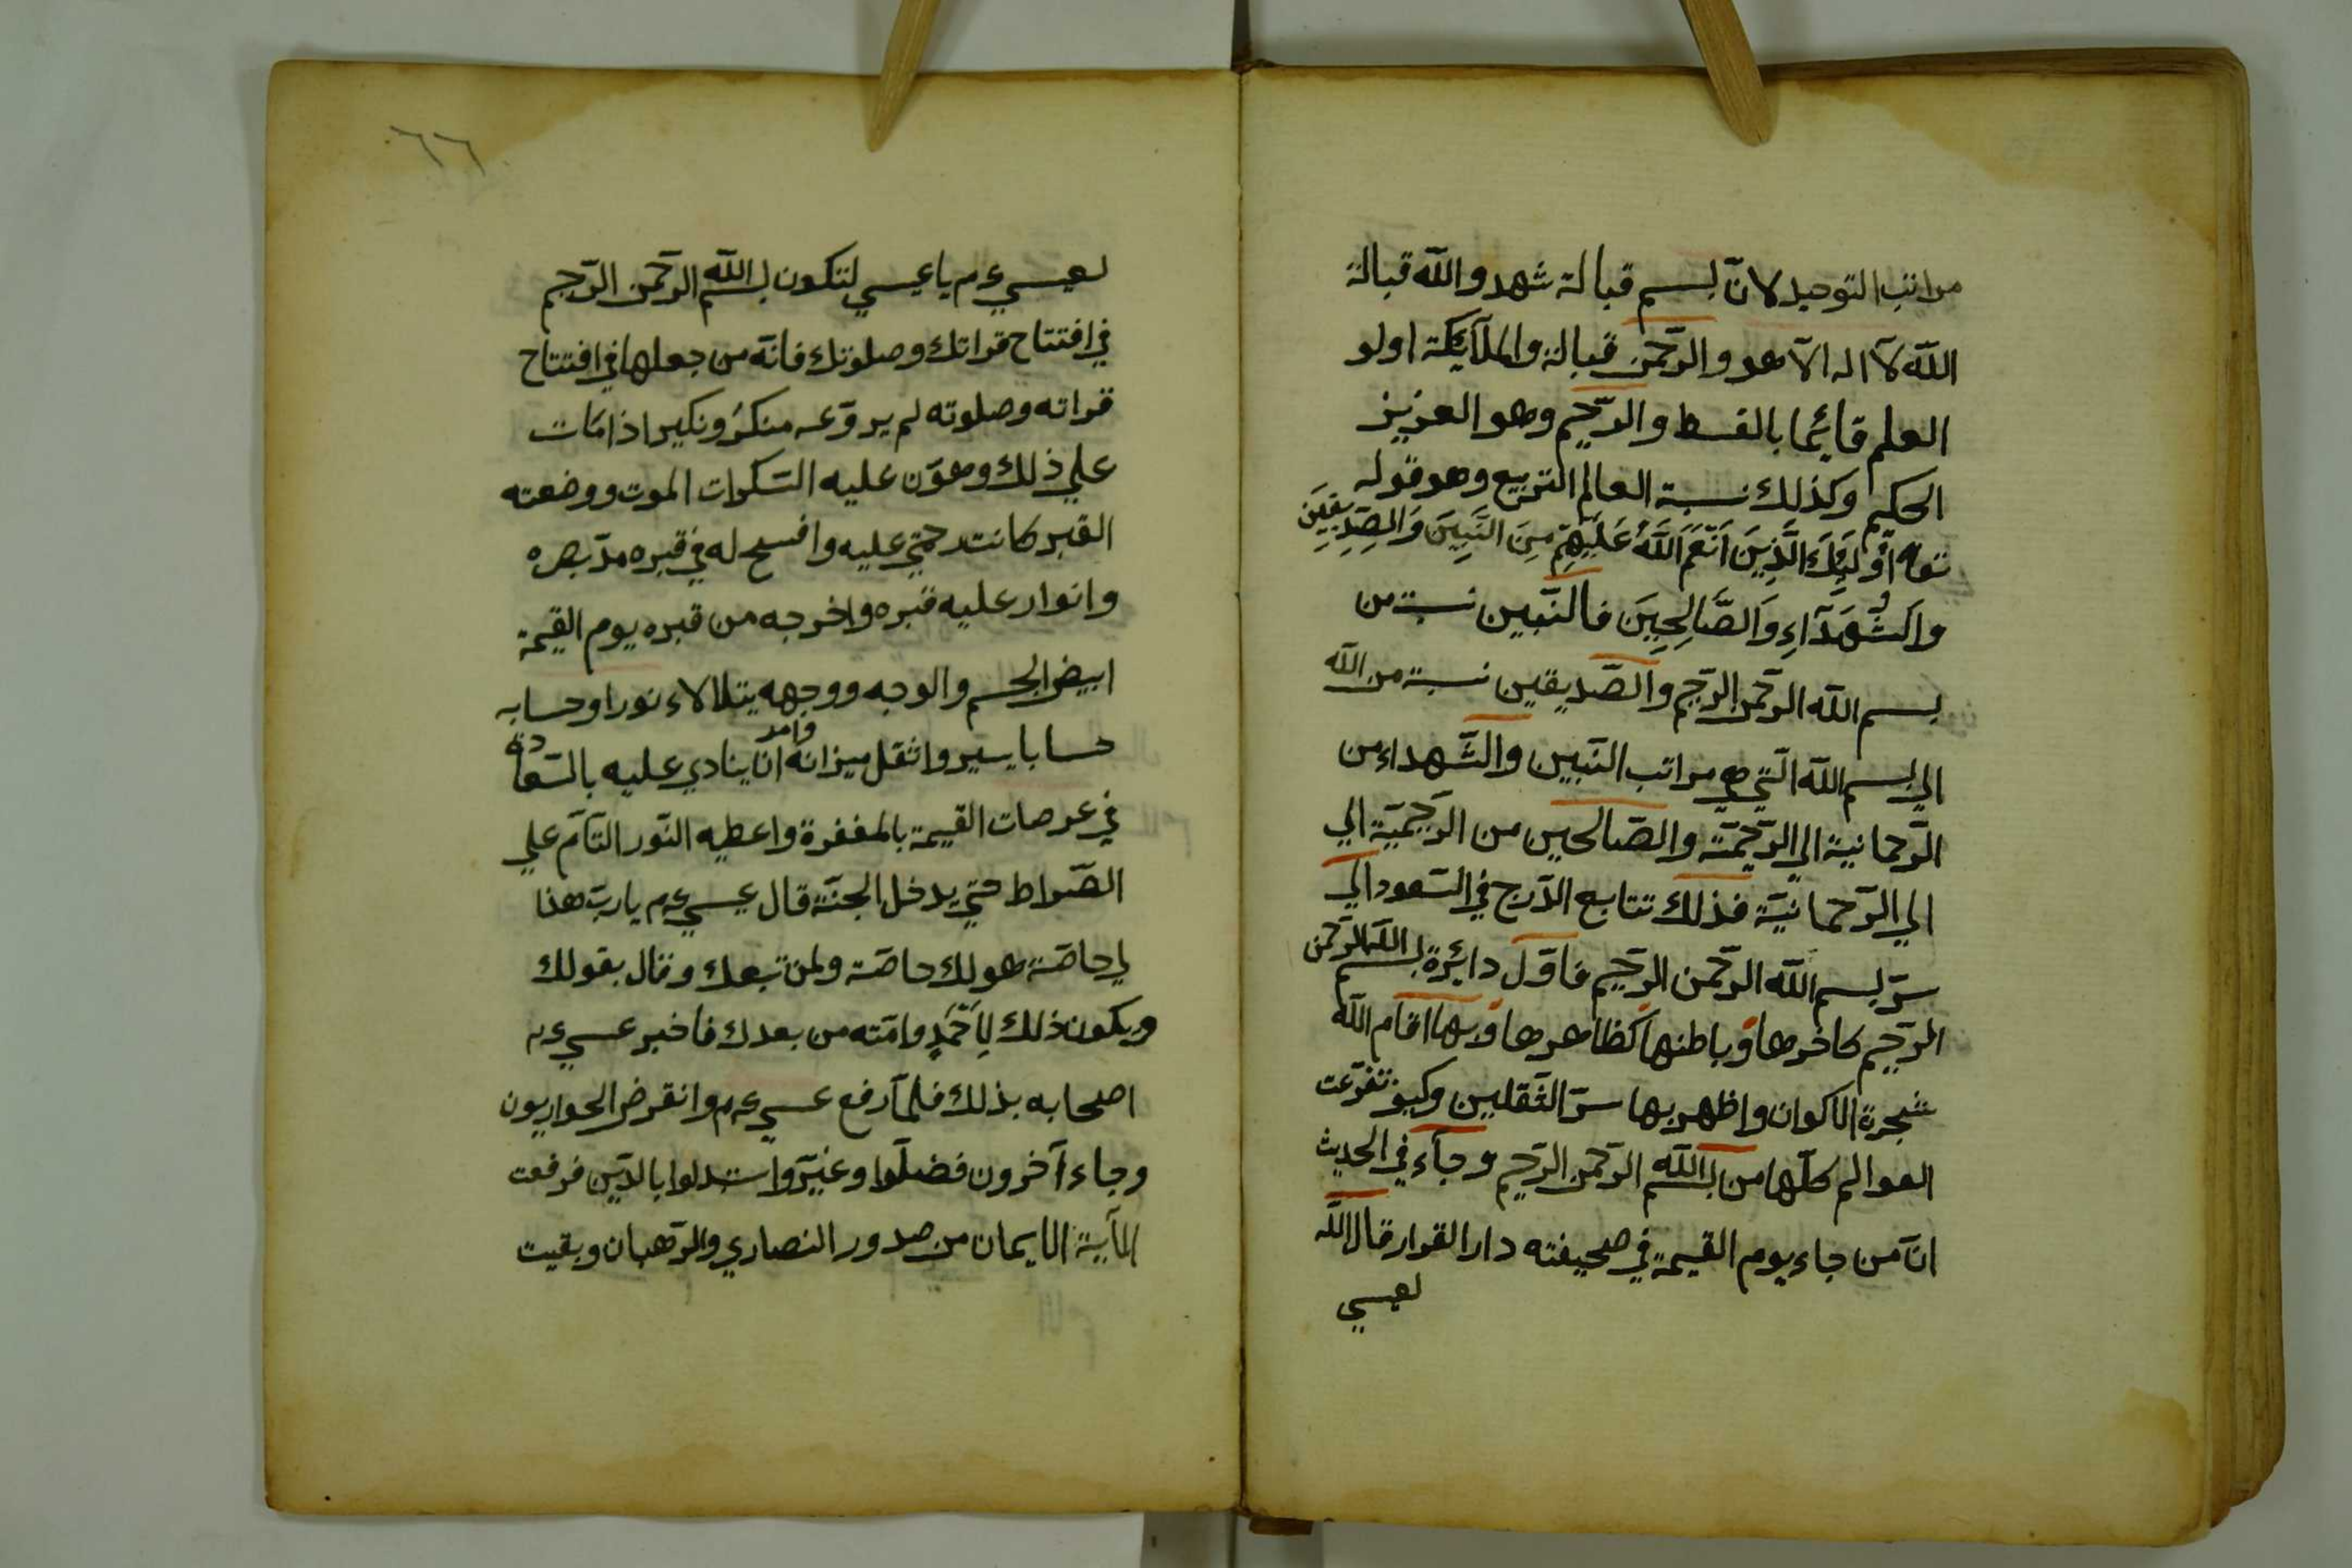 مراتب التوحيد لانّ بسم قبالة شهد والله قبالة
الله لآ اله الّا هو والرّحمن قبالة والملآئكة اولو
العلم قآئما بالقسط والرّحيم وهو العزيز
الحكيم وكذلك نسبة العالم التربيع وهو قوله
تعا اُولَئِكَ الَّذِينَ اَنْعَمَ اللَّهُ عَلَيْهِمْ مِنَ النَّبِيِنَ وَالصِّدِيقِينَ
وَالشُّهَدَآءِ وَالصَّالِحِينَ فالنّبيين نسبة من
بسم الله الرّحمن الرّحيم والصّديقين نسبة من الله
الي بسم الله الّتي هي مراتب النّبيين والشّهداء من
الرّحمانية الي الرّحيميّة والصّالحين من الرّحيميّة الي
الي الرّحمانيّة فذلك تتابع الدّرج في السّعود الي
سرّ بسم الله الرّحمن الرّحيم فاوّل دايرة بسم الله الرّحمن
الرّحيم كاخرها وباطنها كظاهرها وبها اقام الله
شجرة الاكوان واظهر بها سرّ الثّقلين وكيف تفرّعت
العوالم كلّها من بسم الله الرّحمن الرّحيم وجآء في الحديث
انّ من جاء يوم القيمة في صحيفته دار القرار قال الله
لعيسي
٦٦
لعيسي ءم يا عيسي لتكون بسم الله الرّحمن الرّحيم
في افتتاح قراتك وصلوتك فانّه من جعلها في افتتاح
قراته وصلوته لم يروّعه منكرُ ونكير اذا مات
علي ذلك وهوّن عليه السّكرات الموت ووضعته
القبر كانت رحمتي عليه وافسح له في قبره مدّ بصره
وانوار عليه قبره واخرجه من قبره يوم القيمة
ابيض الجسم والوجه ووجهه يتلالاء نورا وحسابه
حسابا يسير واثقل ميزانه وامر انا ينادي عليه بالسّعادة
في عرصات القيمة بالمغفرة واعطيه النّور التّآمّ علي
الصّراط حتي يدخل الجنّة قال عيسي ءم يا ربّ هذا
لي خاصّة هو لك خاصّة ولمن تبعك وقال بقولك
ويكون ذلك لِأَحْمَدٍ وامّته من بعدك فاخبر عيسي ءم
اصحابه بذلك فلمّآ رفع عيسي ءم وانقرض الحواريون
وجاء آخرون فضلّوا وغيّروا استبدلوا بالدّين فرفعت
الآية الايمان من صدور النصاري والرّهبان وبقيت